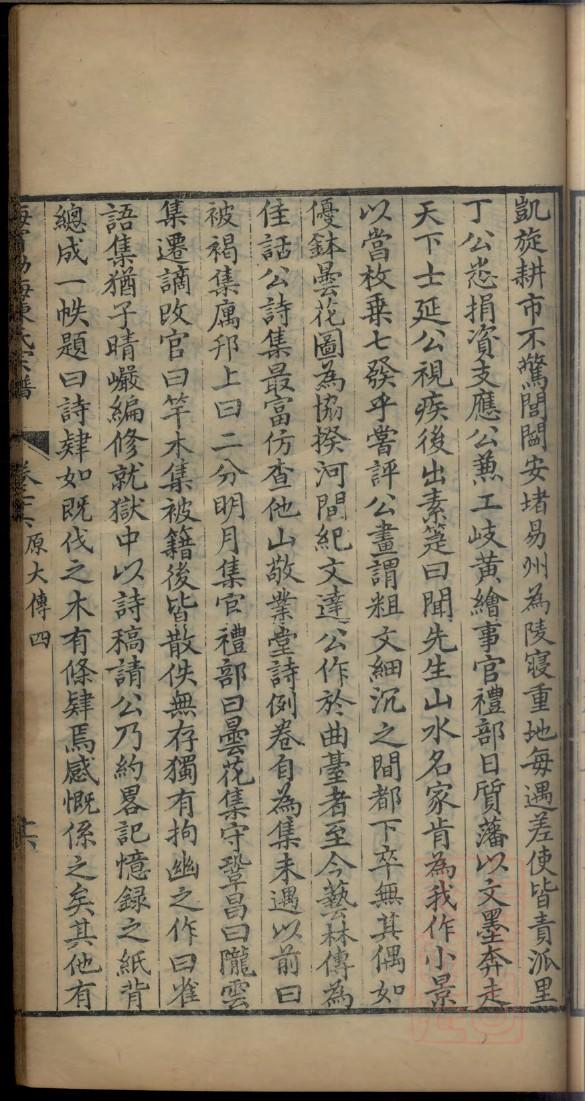 凱旋耕市不驚閭閻安堵易州為陵寢重地每遇差使皆責派里
丁公悉捐資支應公兼工岐黃繪事官禮部日質藩以文墨奔走
天下士延公視疾後出素箑曰聞先生山水名家肯為我作小景
以當枚乘七發乎嘗評公畫謂粗文細沉之間都下卒無其偶如
優鉢曇花圖為協揆河間紀文達公作於曲臺者至今藝林傳為
佳話公詩集最富仿查他山敬業堂詩例卷自為集未遇以前曰
被褐集厲邦上曰二分明月集官禮部曰曇花集守鞏昌曰隴雲
集遷謫改官曰竿木集被籍後皆散佚無存獨有拘幽之作曰雀
語集猶子晴巖編修就獄中以詩稿請公乃約畧記憶錄之紙背
總成一帙題曰詩肄如既伐之木有條肄焉感慨係之矣其他有
海寧渤海陳氏宗譜
原大傳四